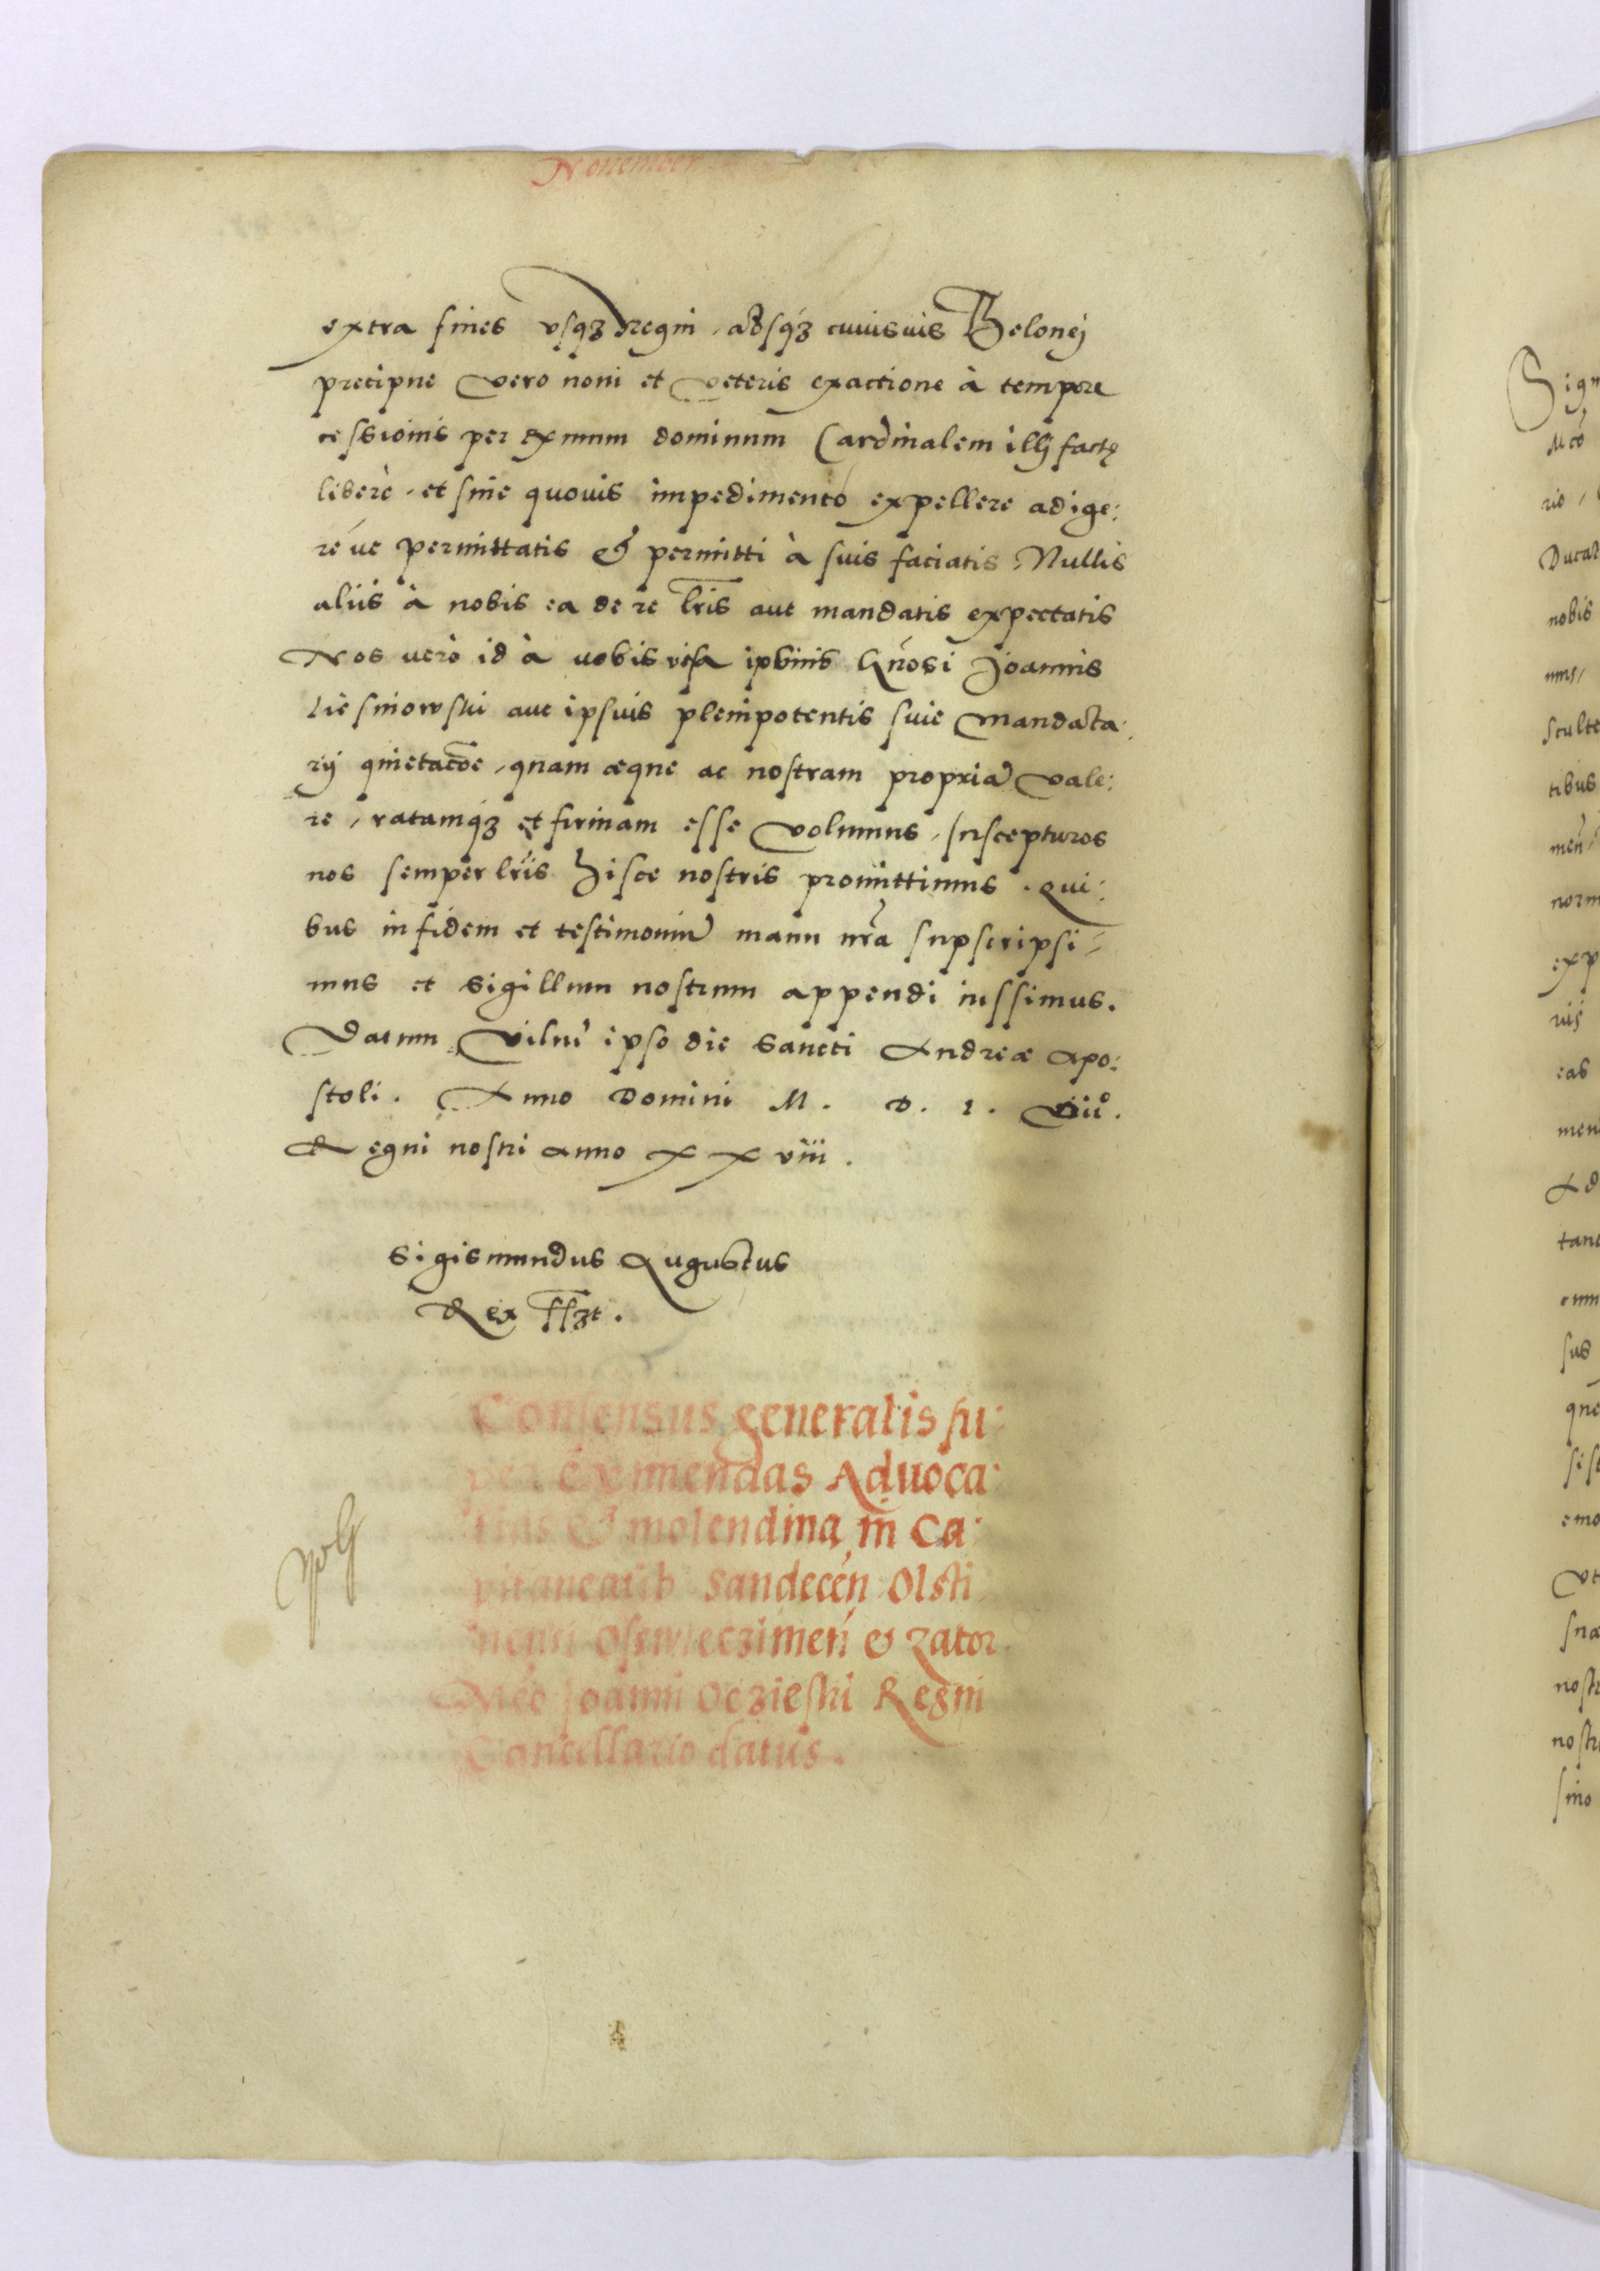 November
extra fines usq₃ regni, absq₃ cuiusuis Telonej
precipue vero noui et veteris exactione à tempore
cessionis per exmum dominum Cardinalem illj factę
liberè, et sine quouis impedimento expellere adige:
réue permittatis & permitti à suis faciatis. Nullis
aliis à nobis ea de re lris aut mandatis expectatis
Nos verò id à vobis visa ipsius Gnosi Joannis
Liesniowski aut ipsius plenipotentis siue mandata:
rij quietacõe, quam æque ac nostram propriã vale:
re, ratamq₃ et firmam esse volumus, suscepturos
nos semper lris hisce nostris promittimus. Qui:
bus in fidem et testimoniũ manu nrã supscripsi-
mus et sigillum nostrum appendi iussimus.
Datum Vilnę ipso die Sancti Andreæ Apo:
stoli. Anno Domini M. D. L. Viiº.
Regni nostri anno XXviii.
Sigismundus Augustus
Rex sszt.
Consensus generalis su:
per eximendas Aduoca:
tias & molendina in Ca:
pitaneatib Sandecen Olsti
nensi Osswieczimen & Zator
Mco Joanni Oczieski Regni
Cancellario datus.
Sign
Mco
rio,
Ducat
nobis
Sculte
tibus
men
norm
exp
eas
Ad
tand
sus
que
emo
nostr
nostr